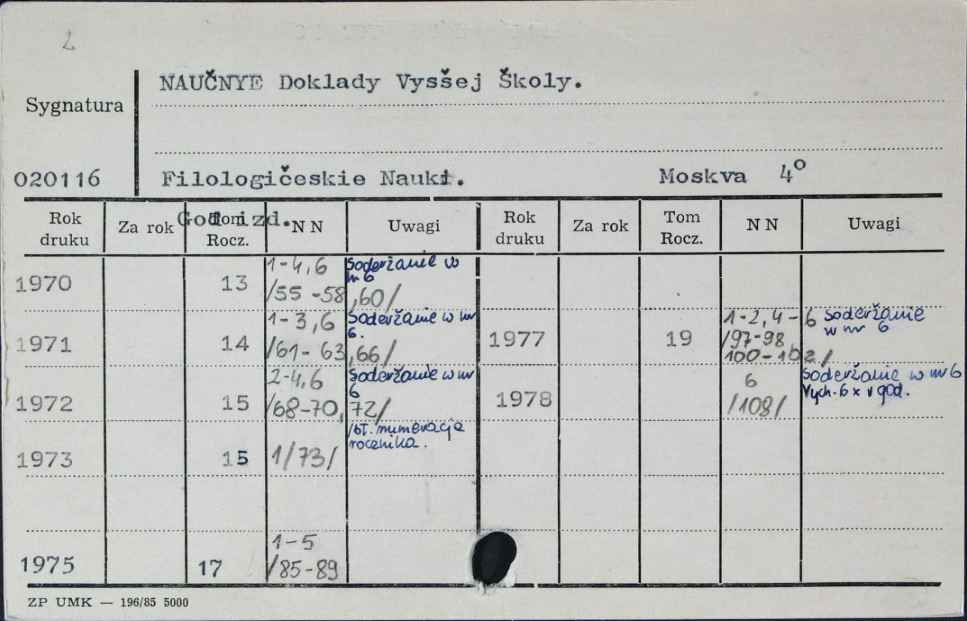 2
NAUČNYE Doklady Vysšej Školy.
Sygnatura
020116
Filologičeskie Nauki. Moskva 4°
God izd.
Rok druku Za rok Tom Rocz. N N Uwagi Rok druku Za rok Tom Rocz. N N Uwagi
1970 13 1-4,6 /55-58,60/ Soderžanie w nr 6
1971 14 1-3,6 /61-63,66/ Soderžanie w nr 6.
1977 19 1-2,4-6 /97-98 100-102/ Soderžanie w nr 6
1972 15 2-4,6 /68-70,72/ Soderžanie w nr 6
1978 6 /108/ Soderžanie w nr 6 Vych. 6 x v god.
1973 15 1/73/ /bł. numeracja rocznika.
1975 17 1-5 /85-89
ZP UMK — 196/85 5000